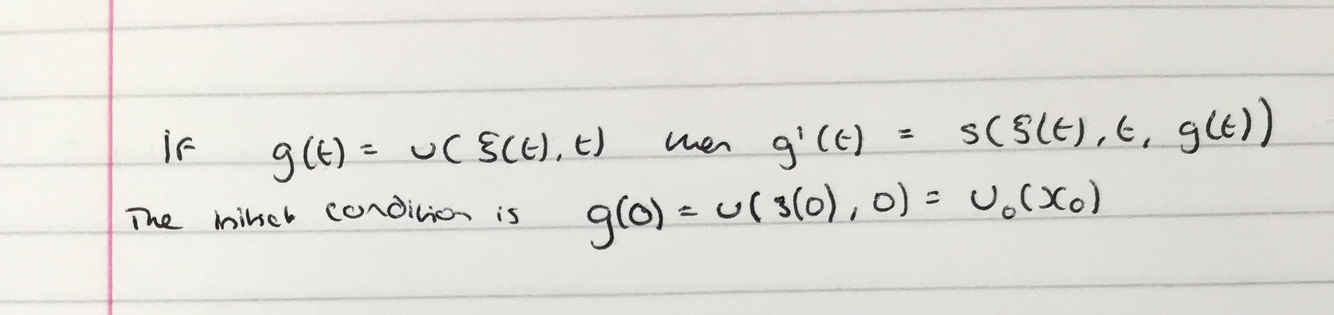 If g(t) = u(ξ(t), t) then g'(t) = s(ξ(t), t, g(t))
The initial condition is g(0) = u(ξ(0), 0) = u₀(x₀)